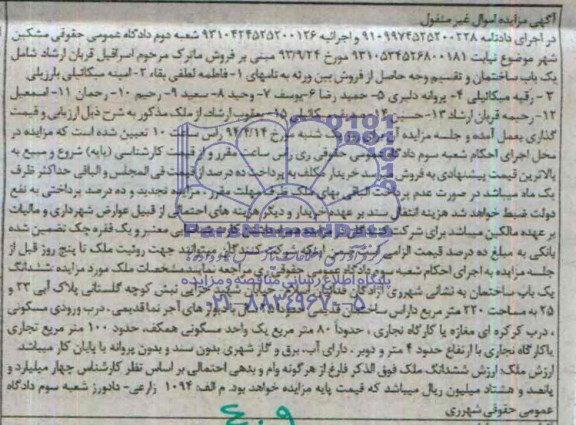 آگهی مزایده اموال غیر منقول
در اجرای دادنامه ۹۱۰۹۹۷۴۵۲۵۲۰۰۲۲۸ و اجرائیه ۹۳۱۰۴۲۴۵۲۵۲۰۰۱۲۶ شعبه دوم دادگاه عمومی حقوقی مشکین
شهر موضوع نیابت ۹۳۱۰۵۳۴۵۲۶۸۰۰۱۸۱ مورخ ۹۳/۹/۲۴ مبنی بر فروش ماترک مرحوم اسرافیل قربان ارشاد شامل
یک باب ساختمان و تقسیم وجه حاصل از فروش بین ورثه به نامهای ۱- فاطمه لطفی بقاء ۲- امینه میکائیلی بارزیلی
۳- رقیه میکائیلی ۴- پروانه دلیری ۵- حمید رضا ۶- یوسف ۷- وحید ۸- سعید ۹- رحیم ۱۰- رحمان ۱۱- اسمعیل
۱۲- رحیمه قربان ارشاد ۱۳- حسین ۱۵- یعقوب ارشاد، از ملک مذکور به شرح ذیل ارزیابی و قیمت
گذاری بعمل آمده و جلسه مزایده شنبه مورخ ۹۴/۴/۱۴ راس ساعت ۱۰ تعیین شده است که مزایده در
محل اجرای احکام شعبه سوم دادگاه عمومی حقوقی ری راس ساعت مقرر و از قیمت کارشناسی (پایه) شروع و سپس به
بالاترین قیمت پیشنهادی به فروش خریدار مکلف به پرداخت ده درصد از قیمت فی المجلس و الباقی حداکثر ظرف
یک ماه میباشد در صورت عدم پرداخت الباقی بهای ملک ظرف مهلت مقرر، مزایده تجدید و ده درصد پرداختی به نفع
دولت ضبط خواهد شد هزینه انتقال سند بر عهده خریدار و دیگر هزینه های احتمالی از قبیل عوارض شهرداری و مالیات
بر عهده مالکین میباشد برای شرکت معتبر و یک فقره چک تضمین شده
بانکی به مبلغ ده درصد قیمت الزامی میتوانند جهت روئیت ملک تا پنج روز قبل از
جلسه مزایده به اجرای احکام شعبه سوم دادگاه عمومی حقوقی ری مراجعه نمایند مشخصات ملک مورد مزایده: ششدانگ
یک باب ساختمان به نشانی شهرری نبش کوچه گلستانی پلاک آبی ۲۳ و
۲۵ به مساحت ۲۲۰ متر مربع دارای ساختمان قدیمی با دیوار های آجر نما قدیمی، درب ورودی مسکونی
، درب کرکره ای مغازه یا کارگاه نجاری، حدوداً ۸۰ متر مربع یک واحد مسکونی همکف، حدود ۱۰۰ متر مربع تجاری
یا کارگاه نجاری با ارتفاع حدود ۴ متر و دوبر، دارای آب، برق و گاز شهری بدون سند و بدون پروانه یا پایان کار میباشد.
ارزش ملک: ارزش ششدانگ ملک فوق الذکر فارغ از هرگونه وام و بدهی احتمالی بر اساس نظر کارشناس چهار میلیارد و
پانصد و هشتاد میلیون ریال میباشد که قیمت پایه مزایده خواهد بود. م الف: ۱۰۹۴ زارعی- دادورز شعبه سوم دادگاه
عمومی حقوقی شهرری
پایگاه اطلاع رسانی مناقصه و مزایده
۰۲۱-۸۸۳۴۹۶۷۰-۵
۴۰۹